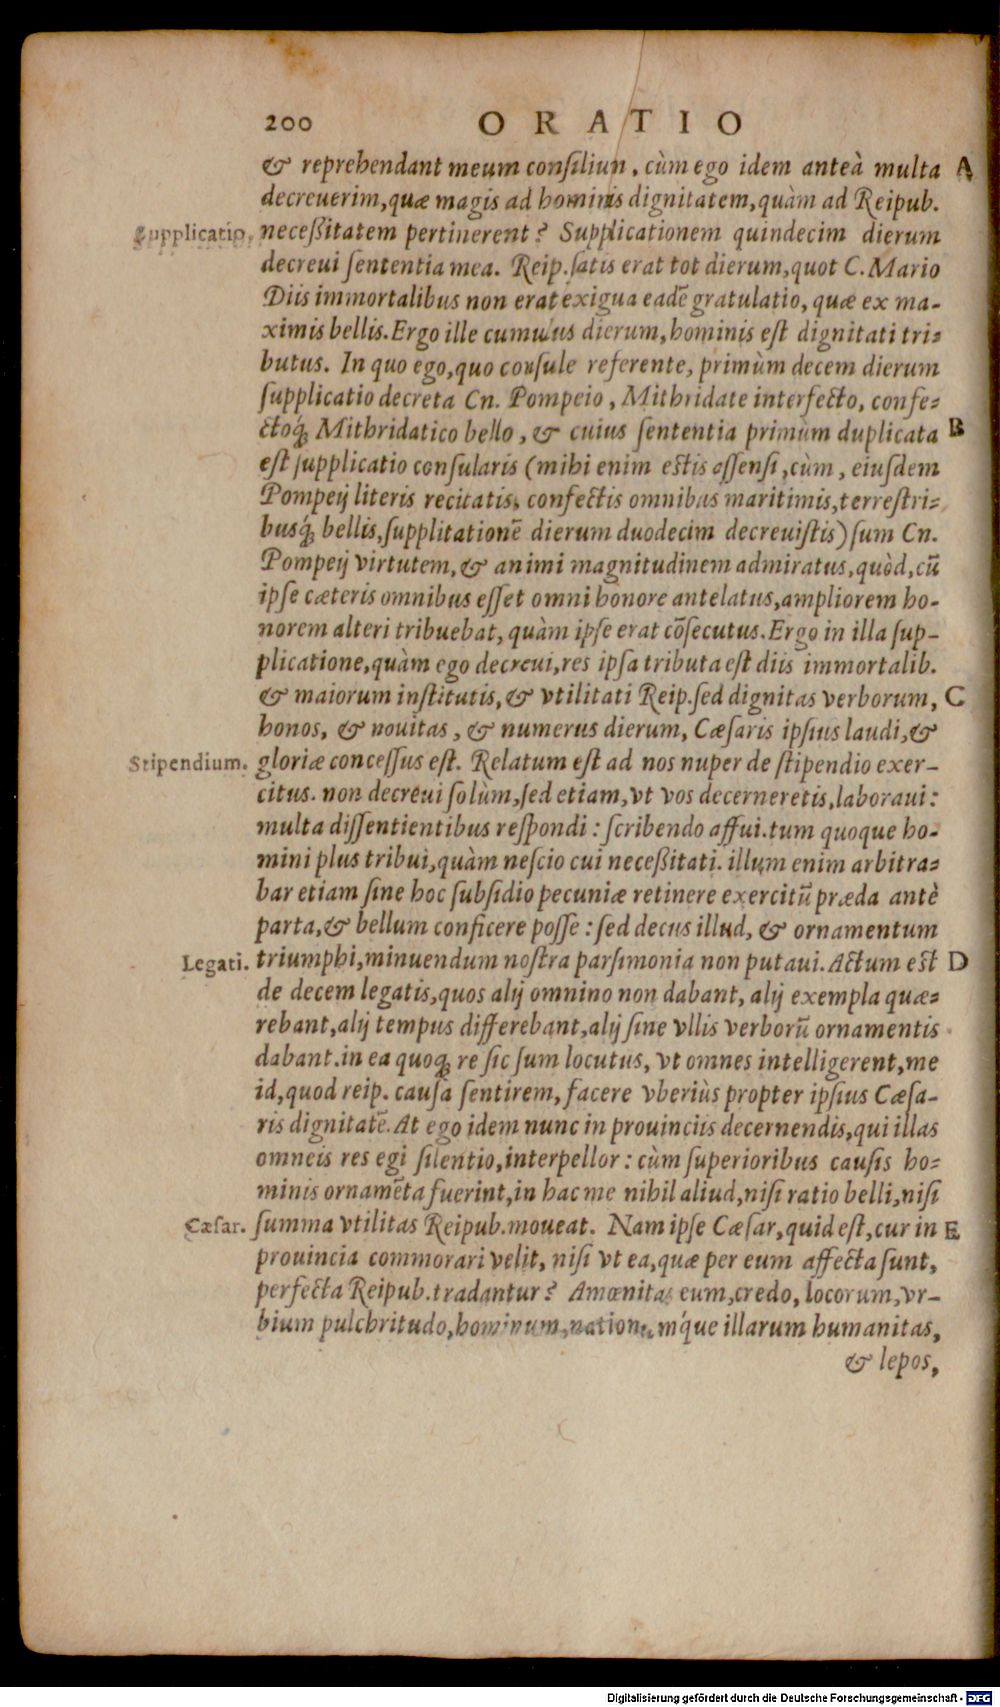 200 ORATIO
& reprehendant meum consiliun, cùm ego idem anteà multa A
decreuerim, quæ magis ad hominis dignitatem, quàm ad Reipub.
Supplicatio. neceßitatem pertinerent? Supplicationem quindecim dierum
decreui ſententia mea. Reip. ſatis erat tot dierum, quot C. Mario
Diis immortalibus non erat exigua eadē gratulatio, quæ ex ma-
ximis bellis. Ergo ille cumulus dierum, hominis eſt dignitati tri-
butus. In quo ego, quo conſule referente, primùm decem dierum
ſupplicatio decreta Cn. Pompeio, Mithridate interfecto, confe-
ctoq́; Mithridatico bello, & cuius ſententia primùm duplicata B
eſt ſupplicatio conſularis (mihi enim eſtis aſſenſi, cùm, eiuſdem
Pompeij literis recitatis, confectis omnibus maritimis, terreſtri-
busq́; bellis, ſupplitationē dierum duodecim decreuiſtis) ſum Cn.
Pompeij virtutem, & animi magnitudinem admiratus, quòd, cū
ipſe cæteris omnibus eſſet omni honore antelatus, ampliorem ho-
norem alteri tribuebat, quàm ipſe erat cōſecutus. Ergo in illa ſup-
plicatione, quàm ego decreui, res ipſa tributa eſt diis immortalib.
& maiorum inſtitutis, & vtilitati Reip. ſed dignitas verborum, C
honos, & nouitas, & numerus dierum, Cæſaris ipſius laudi, &
Stipendium. gloriæ conceſſus eſt. Relatum eſt ad nos nuper de ſtipendio exer-
citus. non decreui ſolùm, ſed etiam, vt vos decerneretis, laboraui:
multa diſſentientibus reſpondi: ſcribendo affui. tum quoque ho-
mini plus tribui, quàm neſcio cui neceßitati. illum enim arbitra-
bar etiam ſine hoc ſubſidio pecuniæ retinere exercitū præda antè
parta, & bellum conficere poſſe: ſed decus illud, & ornamentum
Legati. triumphi, minuendum noſtra parſimonia non putaui. Actum eſt D
de decem legatis, quos alij omnino non dabant, alij exempla quæ-
rebant, alij tempus differebant, alij ſine vllis verborū ornamentis
dabant. in ea quoq; re ſic ſum locutus, vt omnes intelligerent, me
id, quod reip. cauſa ſentirem, facere vberiùs propter ipſius Cæſa-
ris dignitatē. At ego idem nunc in prouinciis decernendis, qui illas
omneis res egi ſilentio, interpellor: cùm ſuperioribus cauſis ho-
minis ornamēta fuerint, in hac me nihil aliud, niſi ratio belli, niſi
Cæſar. ſumma vtilitas Reipub. moueat. Nam ipſe Cæſar, quid eſt, cur in E
prouincia commorari velit, niſi vt ea, quæ per eum affecta ſunt,
perfecta Reipub. tradantur? Amœnitas eum, credo, locorum, vr-
bium pulchritudo, hominum, nationumq́ue illarum humanitas,
& lepos,
Digitalisierung gefördert durch die Deutsche Forschungsgemeinschaft - DFG